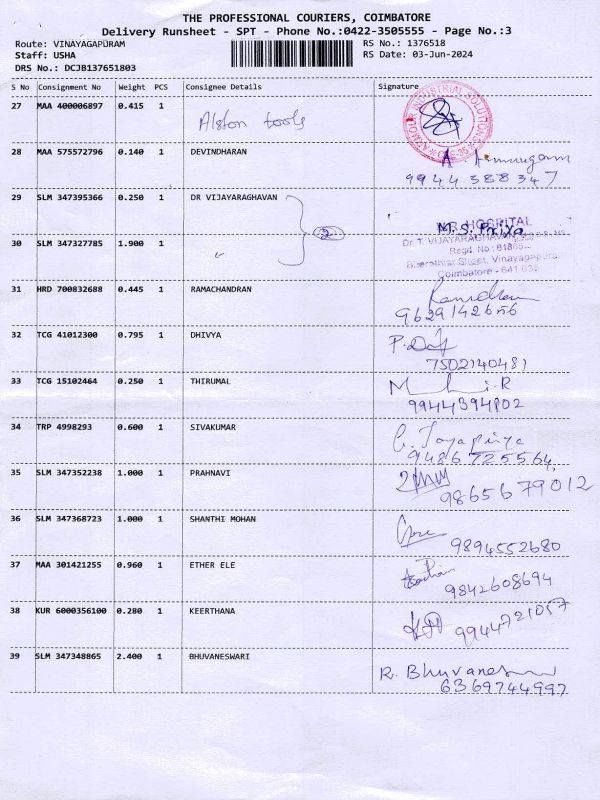 THE PROFESSIONAL COURIERS, COIMBATORE
Delivery Runsheet - SPT - Phone No.:0422-3505555 - Page No.:3
Route: VINAYAGAPURAM RS No.: 1376518
Staff: USHA RS Date: 03-Jun-2024
DRS No.: DCJB137651803
S No Consignment No Weight PCS Consignee Details Signature
27 MAA 400006897 0.415 1 Alston tools
ARMOUR INDUSTRIAL SOLUTIONS
CBE-35
28 MAA 575572796 0.140 1 DEVINDHARAN
9944388347
29 SLM 347395366 0.250 1 DR VIJAYARAGHAVAN
2
M.S. Priya
HOSPITAL
Dr. T. VIJAYARAGHAVAN
30 SLM 347327785 1.900 1 "
Regd. No
Bharathiar Street, Vinayagapuram
Coimbatore - 641 035
31 HRD 700832688 0.445 1 RAMACHANDRAN
9629142656
32 TCG 41012300 0.795 1 DHIVYA
7502140481
33 TCG 15102464 0.250 1 THIRUMAL
9944394802
34 TRP 4998293 0.600 1 SIVAKUMAR G. Jayapriya
9486725564
35 SLM 347352238 1.000 1 PRAHNAVI
9865679012
36 SLM 347368723 1.000 1 SHANTHI MOHAN
9894552680
37 MAA 301421255 0.960 1 ETHER ELE
9842608694
38 KUR 6000356100 0.280 1 KEERTHANA
9944721057
39 SLM 347348865 2.400 1 BHUVANESWARI
6369744997